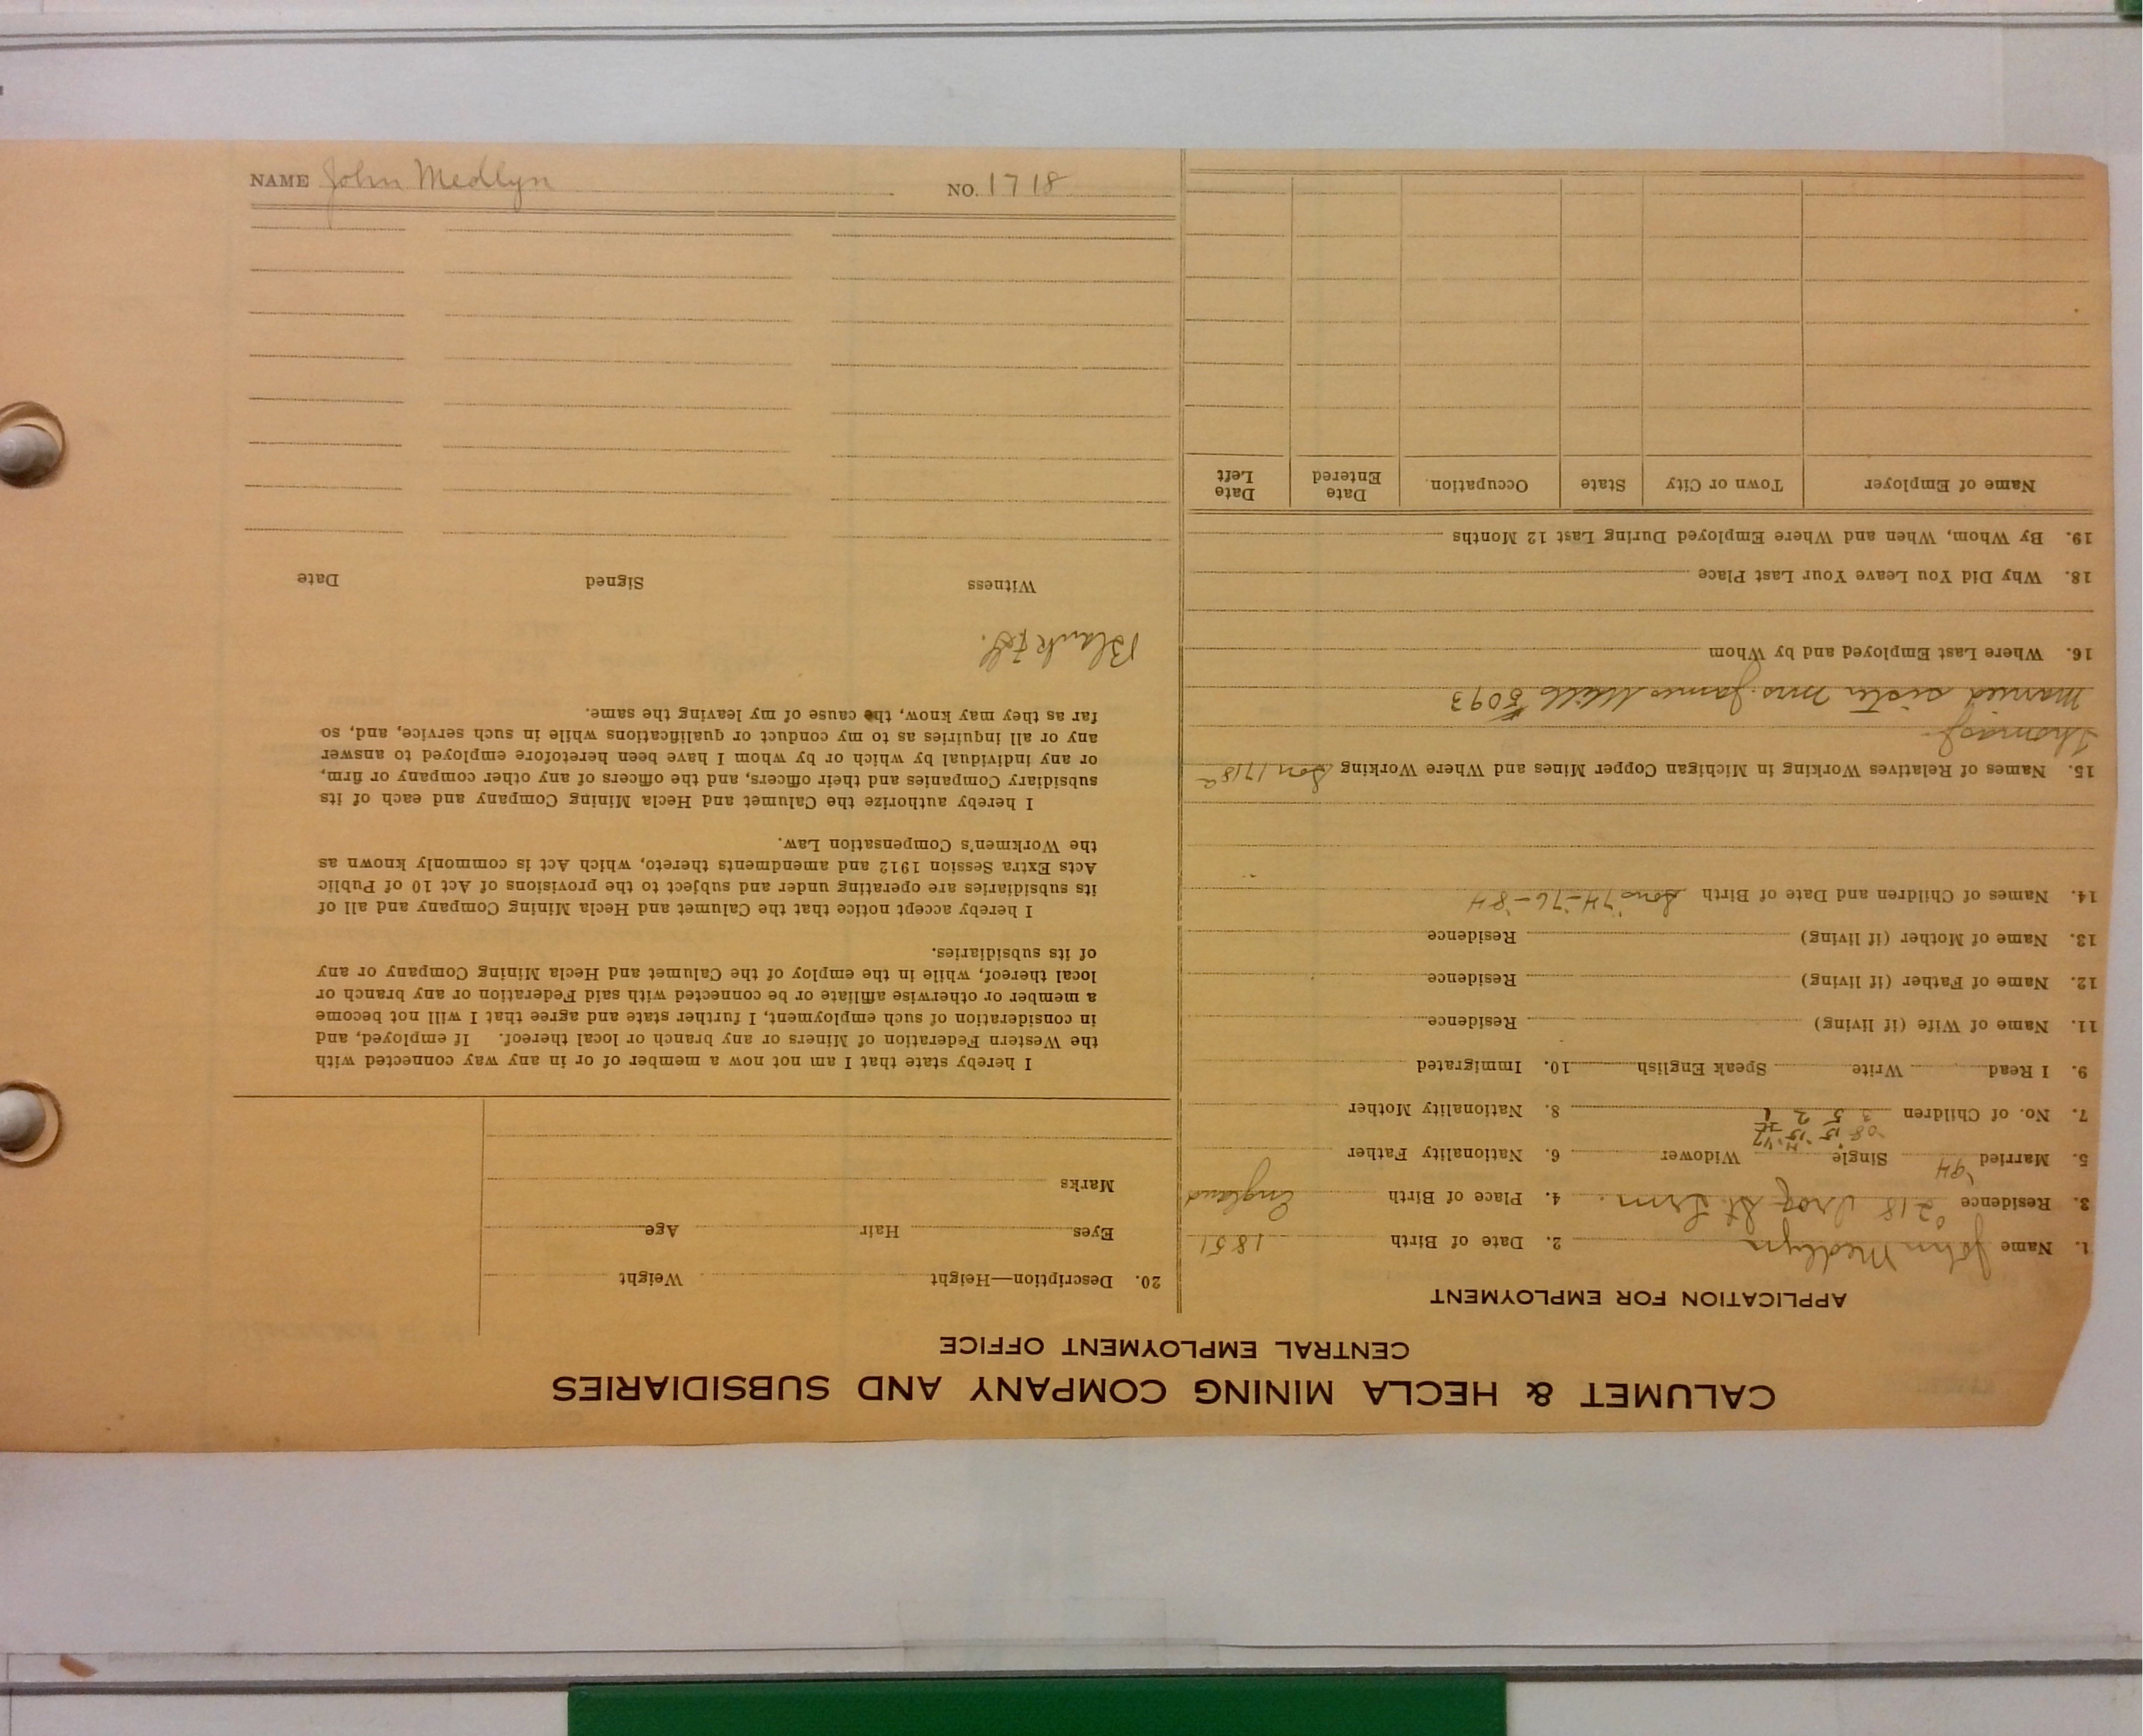 CALUMET & HECLA MINING COMPANY AND SUBSIDIARIES
CENTRAL EMPLOYMENT OFFICE
APPLICATION FOR EMPLOYMENT
1. Name John Medlyn 2. Date of Birth 1851
3. Residence 218 St. 4. Place of Birth England
5. Married '94 Single Widower 6. Nationality Father
'08 '15 '15 '17
7. No. of Children 3 5 2 1 8. Nationality Mother
9. I Read Write Speak English 10. Immigrated
11. Name of Wife (if living) Residence
12. Name of Father (if living) Residence
13. Name of Mother (if living) Residence
14. Names of Children and Date of Birth Sons '74-'76-'84
15. Names of Relatives Working in Michigan Copper Mines and Where Working Son 1718a
Thomas
married sister Mrs. James 5093
16. Where Last Employed and by Whom
18. Why Did You Leave Your Last Place
19. By Whom, When and Where Employed During Last 12 Months
Name of Employer Town or City State Occupation. Date Entered Date Left
20. Description—Height Weight
Eyes Hair Age
Marks
I hereby state that I am not now a member of or in any way connected with
the Western Federation of Miners or any branch or local thereof. If employed, and
in consideration of such employment, I further state and agree that I will not become
a member or otherwise affiliate or be connected with said Federation or any branch or
local thereof, while in the employ of the Calumet and Hecla Mining Company or any
of its subsidiaries.
I hereby accept notice that the Calumet and Hecla Mining Company and all of
its subsidiaries are operating under and subject to the provisions of Act 10 of Public
Acts Extra Session 1912 and amendments thereto, which Act is commonly known as
the Workmen's Compensation Law.
I hereby authorize the Calumet and Hecla Mining Company and each of its
subsidiary Companies and their officers, and the officers of any other company or firm,
or any individual by which or by whom I have been heretofore employed to answer
any or all inquiries as to my conduct or qualifications while in such service, and, so
far as they may know, the cause of my leaving the same.
Witness Signed Date
NAME John Medlyn NO. 1718